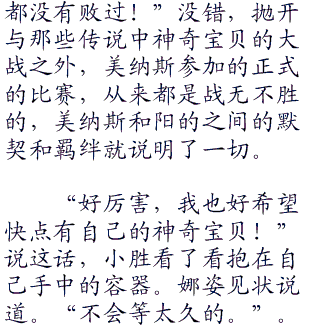 都没有败过！”没错，抛开
与那些传说中神奇宝贝的大
战之外，美纳斯参加的正式
的比赛，从来都是战无不胜
的，美纳斯和阳的之间的默
契和羁绊就说明了一切。
“好厉害，我也好希望
快点有自己的神奇宝贝！”
说这话，小胜看了看抱在自
己手中的容器。娜姿见状说
道。“不会等太久的。”。